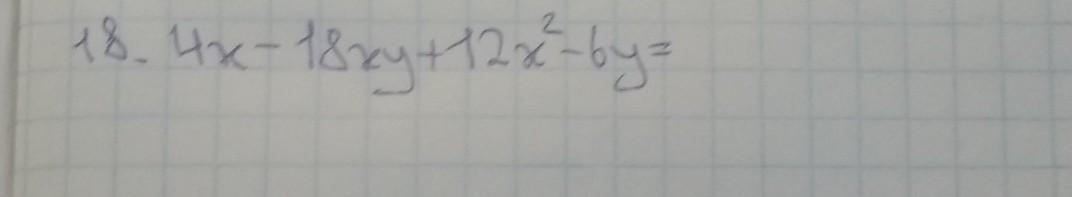 18. 4x-18xy+12x²-6y=